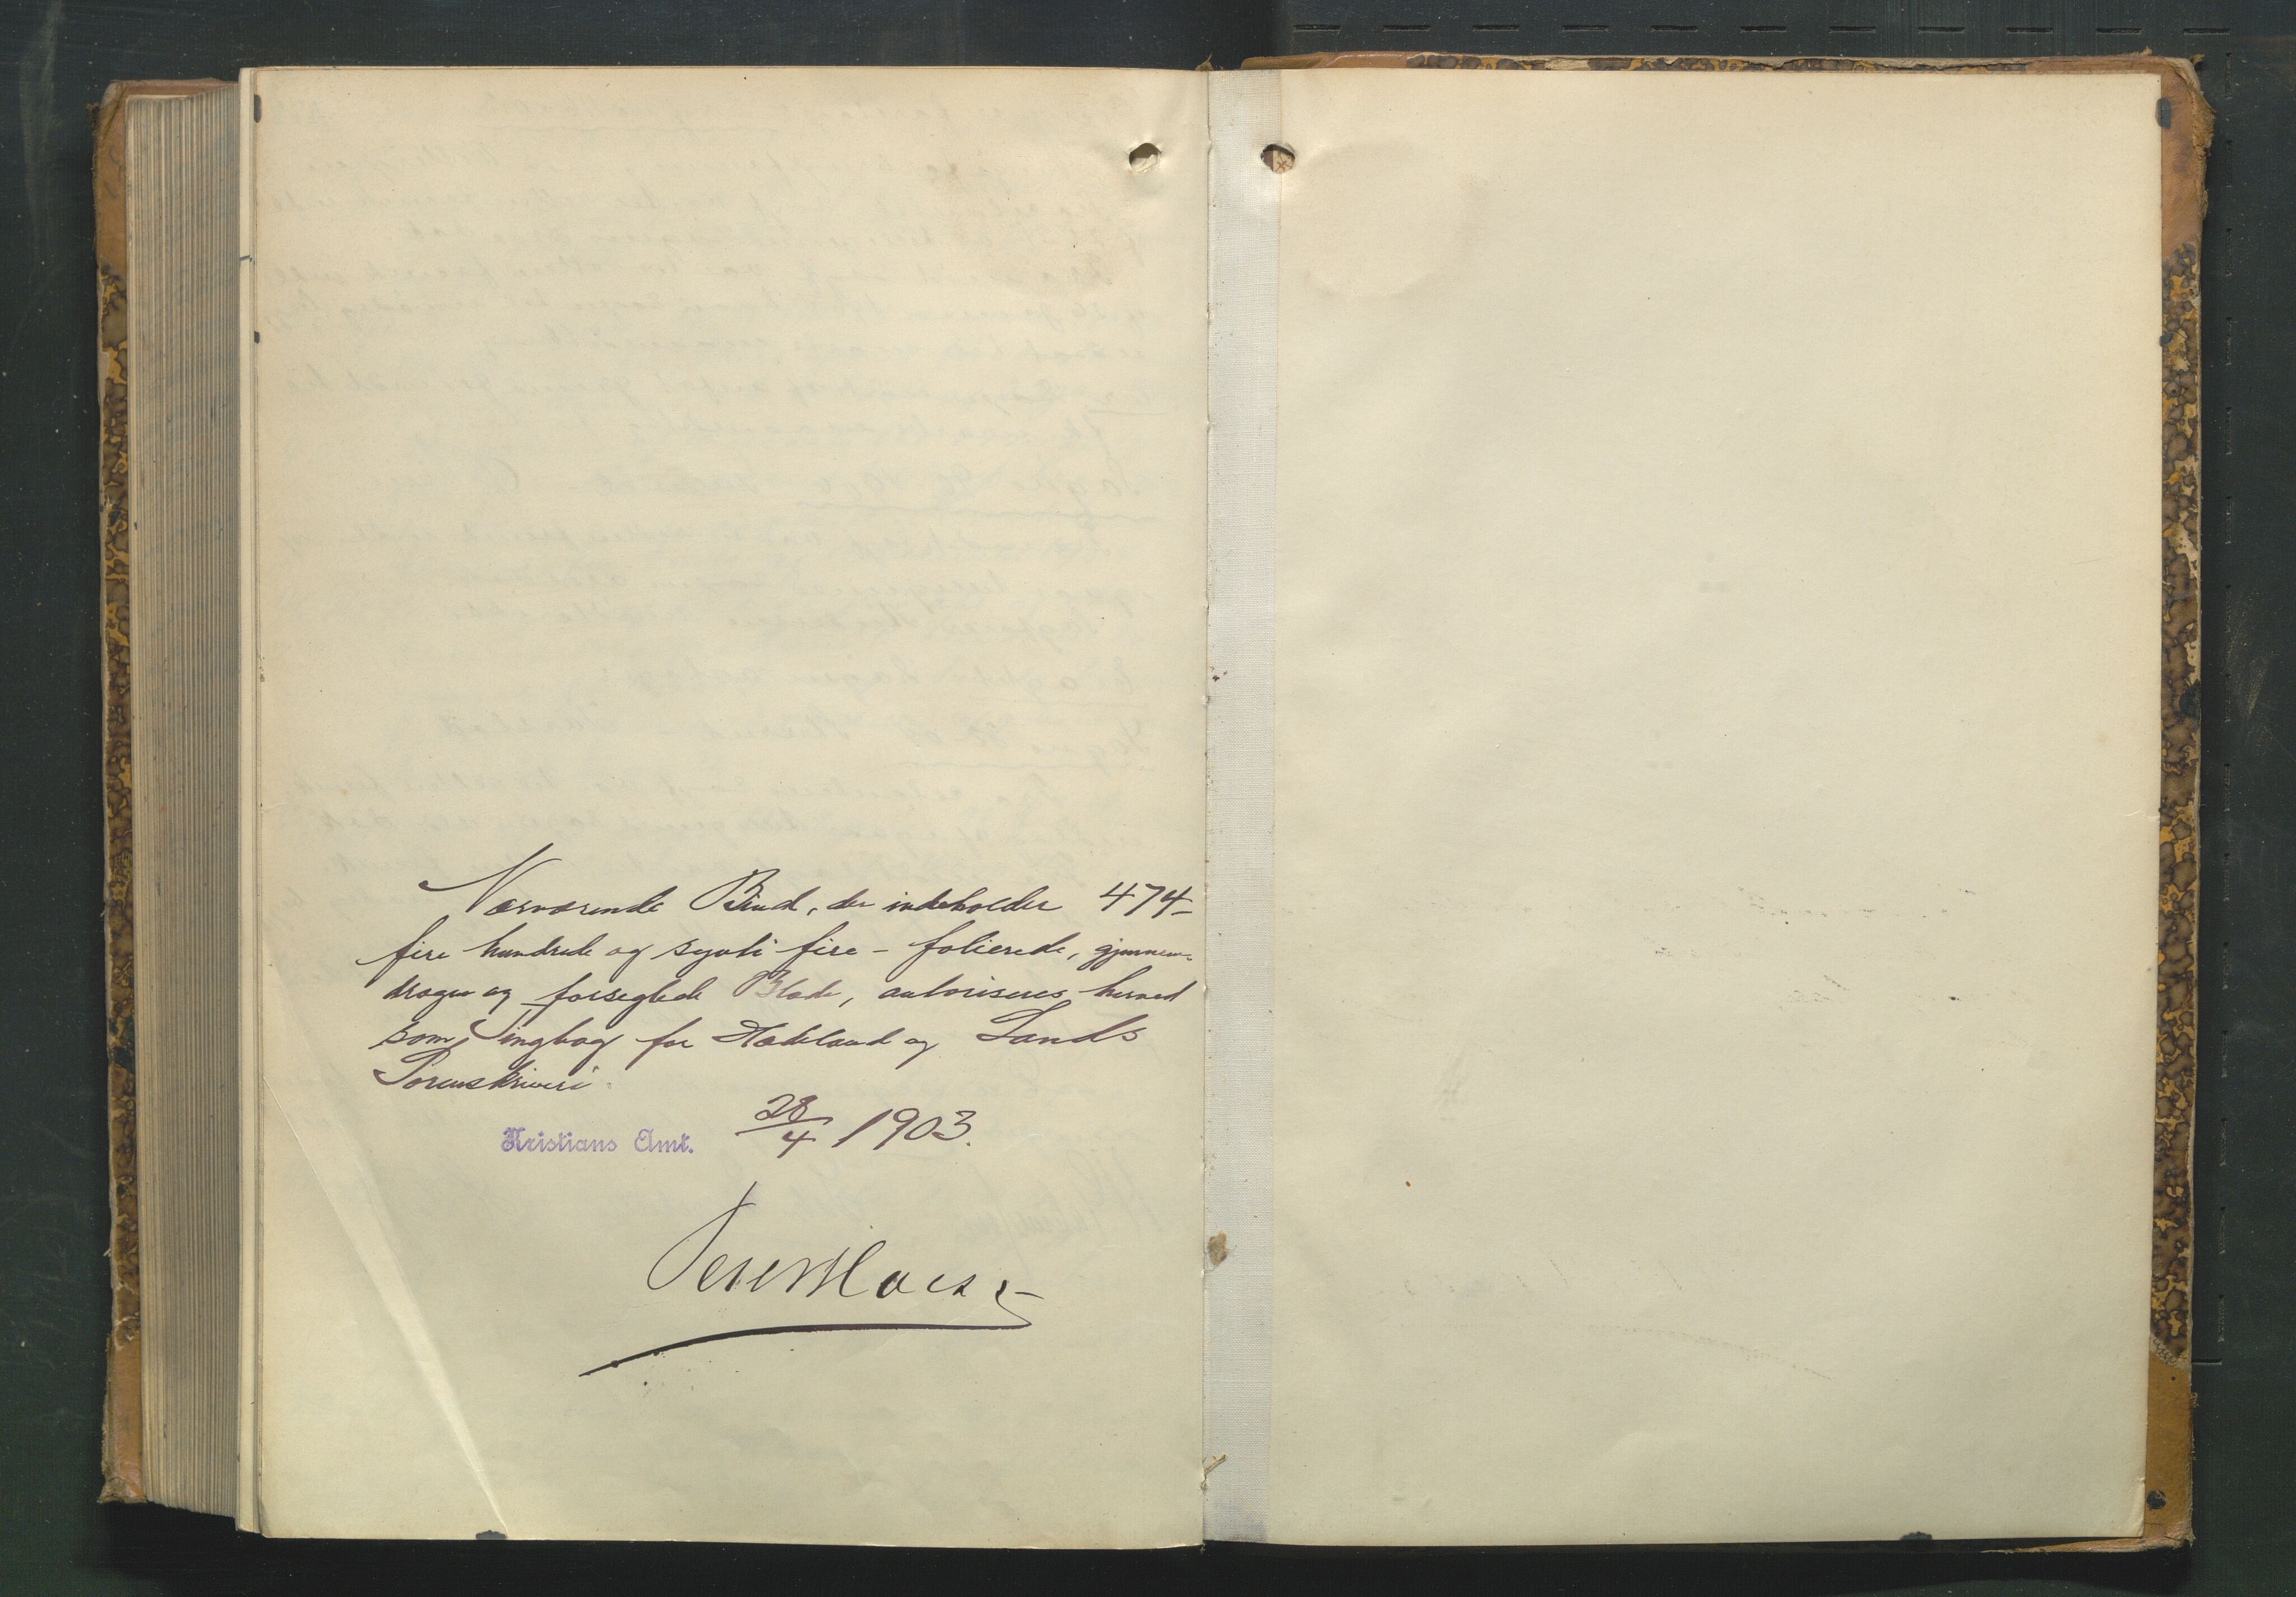 Nærværende Bind, der indeholder 474-
fire hundrede og sytti fire - folierede, gjennem-
dragne og forseglede Blade, autoriseres herved
som Tingbog for Hadeland og Lands
Sorenskriveri.
Kristians Amt. 28/4 1903.